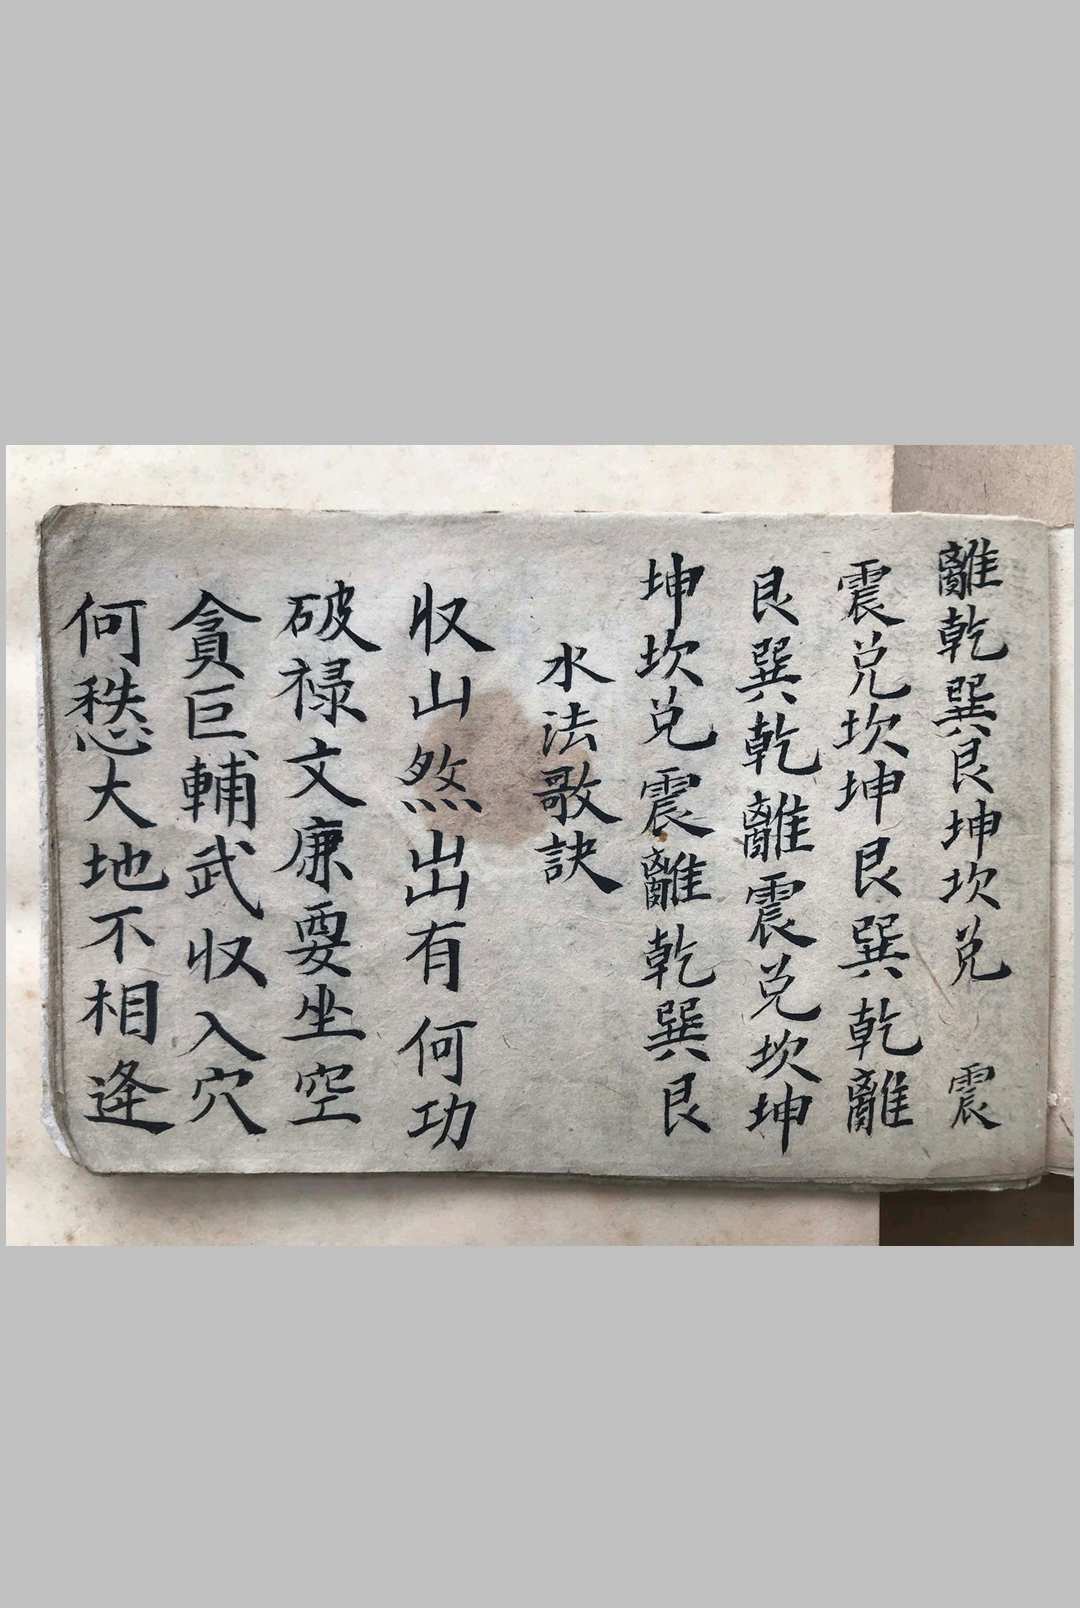 離乾巽艮坤坎兑　震
震兑坎坤艮巽乾離
艮巽乾離震兑坎坤
坤坎兑震離乾巽艮
水法歌訣
収山煞出有何功
破禄文廉要坐空
貪巨輔武収入穴
何愁大地不相逢